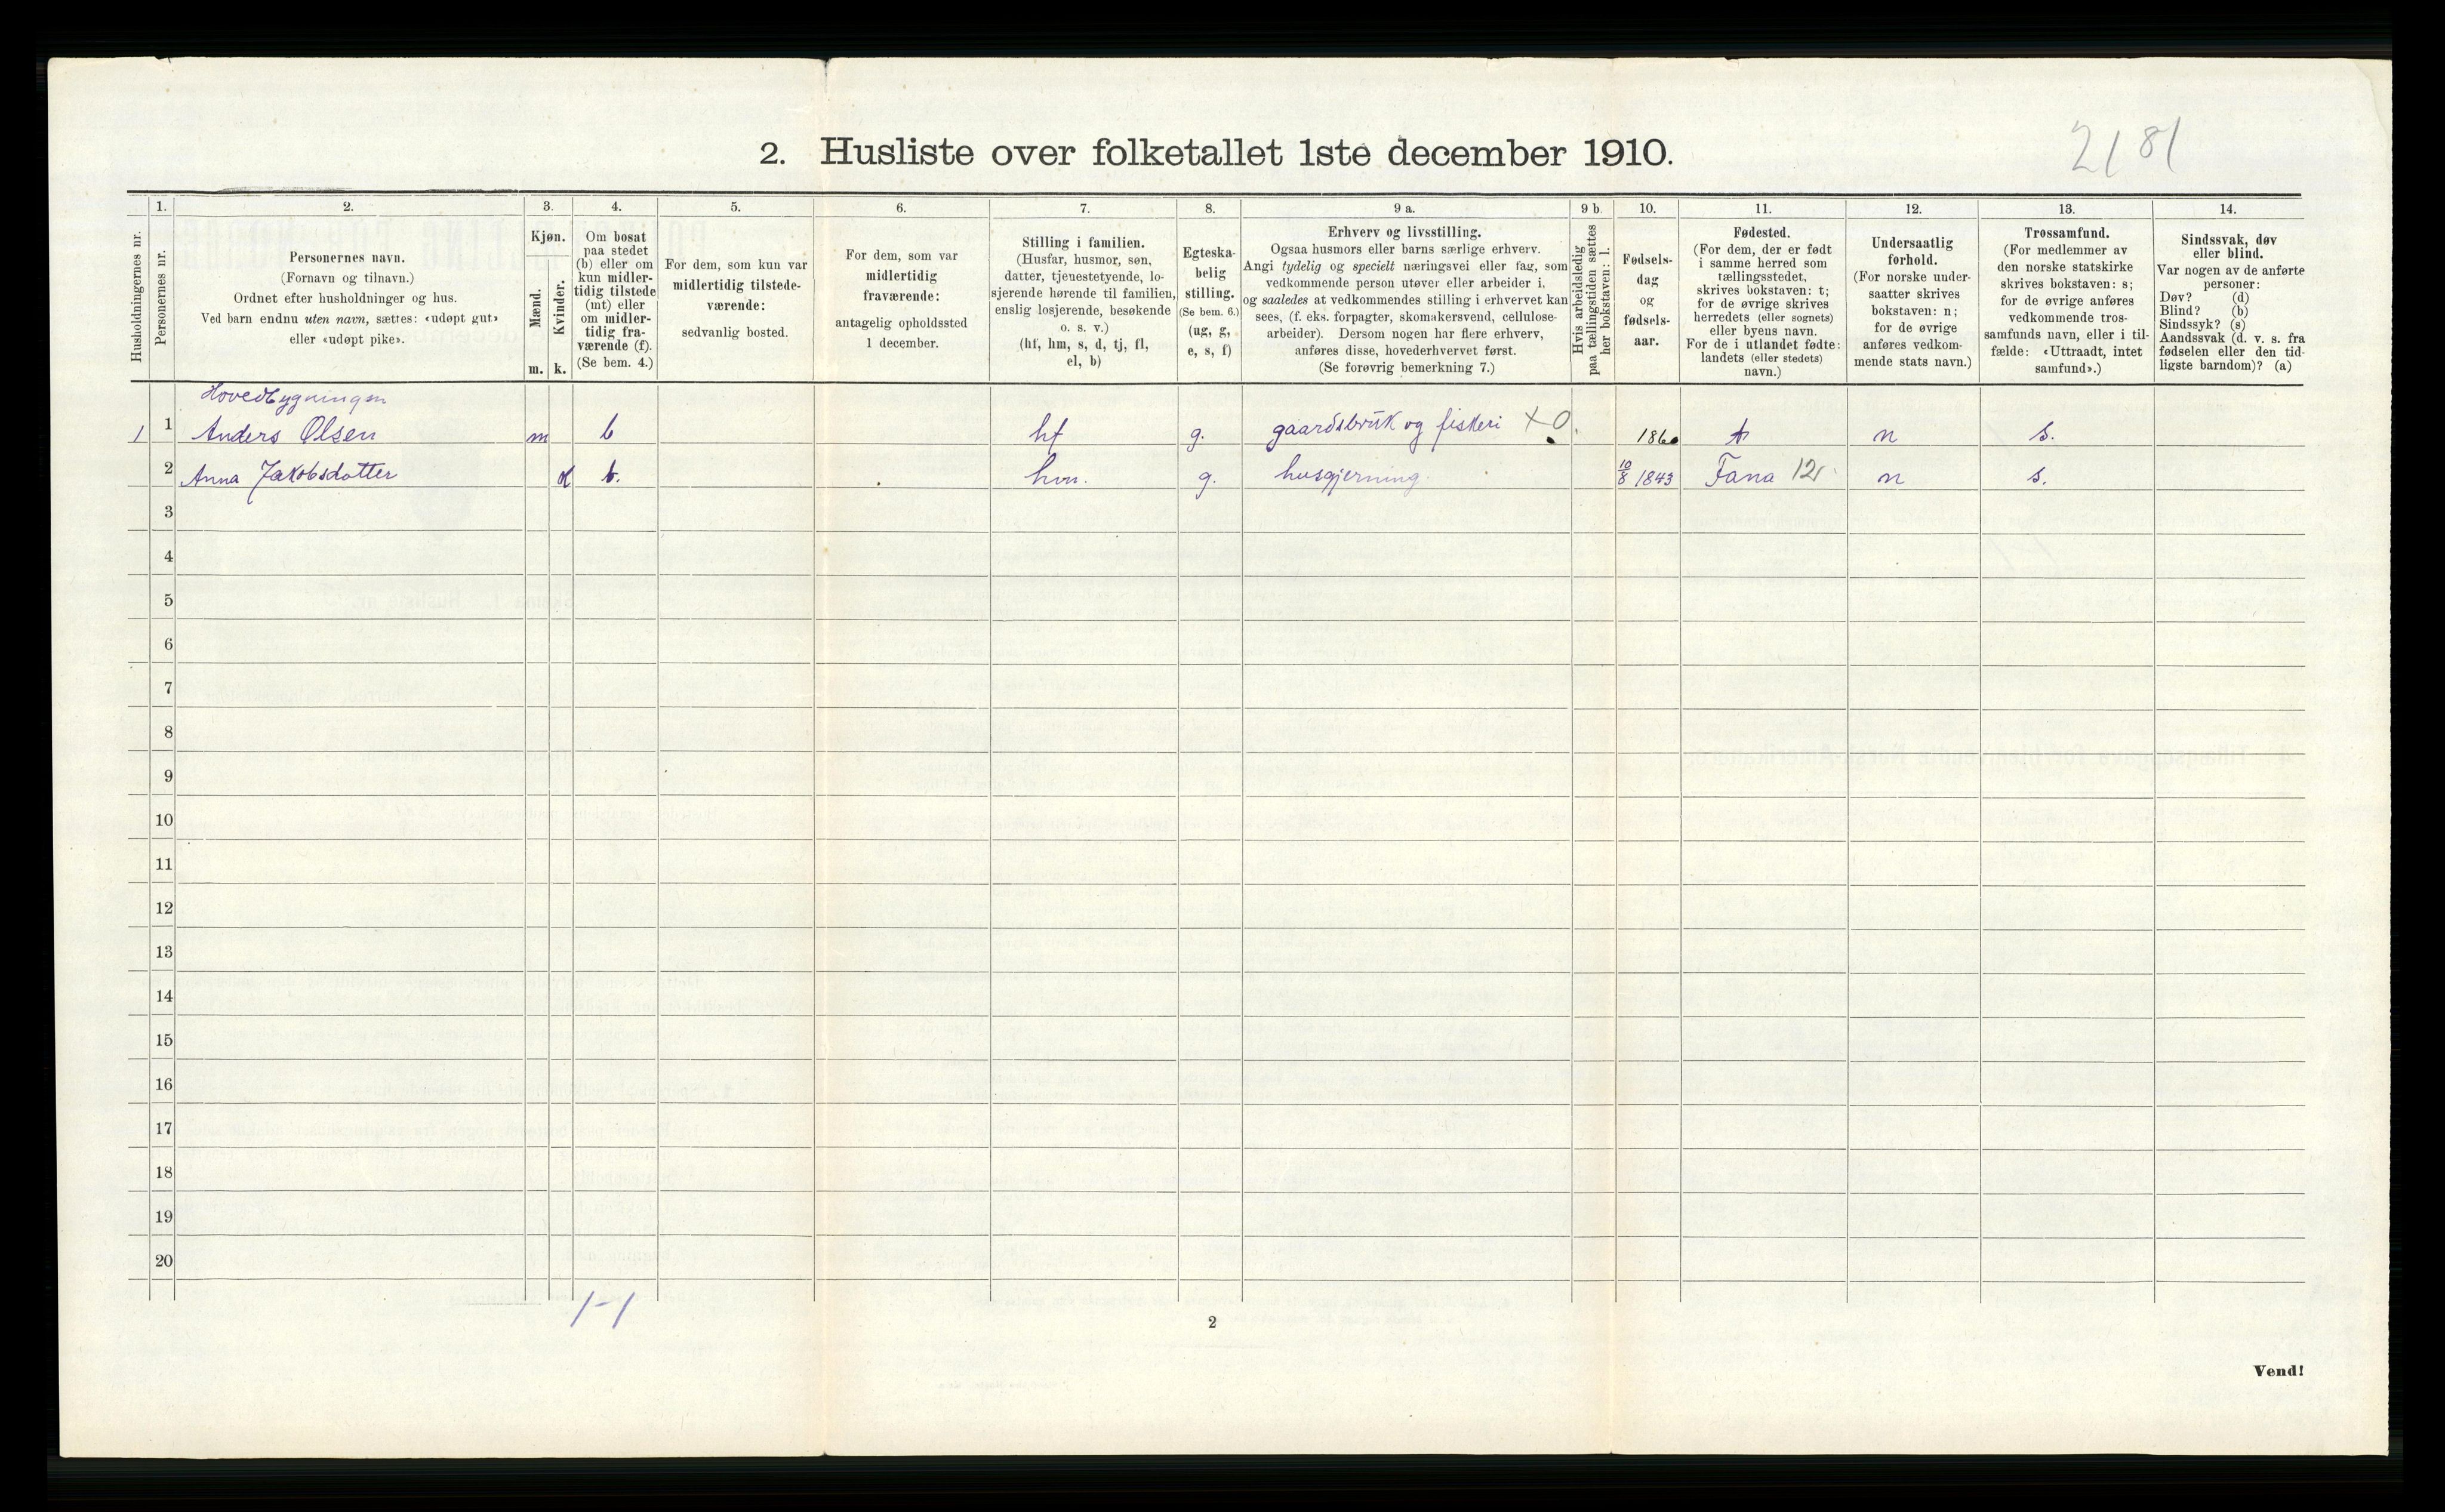 2181
2. Husliste over folketallet 1ste december 1910.
1. 2. 3. 4. 5. 6. 7. 8. 9 a. 9 b. 10. 11. 12. 13. 14.
Husholdningernes nr.
Personernes nr.
Personernes navn.
(Fornavn og tilnavn.)
Ordnet efter husholdninger og hus.
Ved barn endnu uten navn, sættes: «udøpt gut»
eller «udøpt pike».
Kjøn.
Mænd.
Kvinder.
m. k.
Om bosat
paa stedet
(b) eller om
kun midler-
tidig tilstede
(mt) eller
om midler-
tidig fra-
værende (f).
(Se bem. 4.)
For dem, som kun var
midlertidig tilstede-
værende:
sedvanlig bosted.
For dem, som var
midlertidig
fraværende:
antagelig opholdssted
1 december.
Stilling i familien.
(Husfar, husmor, søn,
datter, tjenestetyende, lo-
sjerende hørende til familien,
enslig losjerende, besøkende
o. s. v.)
(hf, hm, s, d, tj, fl,
el, b)
Egteska-
belig
stilling.
(Se bem. 6.)
(ug, g,
e, s, f)
Erhverv og livsstilling.
Ogsaa husmors eller barns særlige erhverv.
Angi tydelig og specielt næringsvei eller fag, som
vedkommende person utøver eller arbeider i,
og saaledes at vedkommendes stilling i erhvervet kan
sees, (f. eks. forpagter, skomakersvend, cellulose-
arbeider). Dersom nogen har flere erhverv,
anføres disse, hovederhvervet først.
(Se forøvrig bemerkning 7.)
Hvis arbeidsledig
paa tællingstiden sættes
her bokstaven: l.
Fødsels-
dag
og
fødsels-
aar.
Fødested.
(For dem, der er født
i samme herred som
tællingsstedet,
skrives bokstaven: t;
for de øvrige skrives
herredets (eller sognets)
eller byens navn.
For de i utlandet fødte:
landets (eller stedets)
navn.)
Undersaatlig
forhold.
(For norske under-
saatter skrives
bokstaven: n;
for de øvrige
anføres vedkom-
mende stats navn.)
Trossamfund.
(For medlemmer av
den norske statskirke
skrives bokstaven: s;
for de øvrige anføres
vedkommende tros-
samfunds navn, eller i til-
fælde: «Uttraadt, intet
samfund».)
Sindssvak, døv
eller blind.
Var nogen av de anførte
personer:
Døv? (d)
Blind? (b)
Sindssyk? (s)
Aandssvak (d. v. s. fra
fødselen eller den tid-
ligste barndom)? (a)
Hovedbygningen
1 1 Anders Olsen m b hf g. gaardsbruk og fiskeri X0. 1860 t n s.
2 Anna Jakobsdatter k b. hm. g. husgjerning. 10/8 1843 Fana 12 n s.
3
4
5
6
7
8
9
10
11
12
13
14
15
16
17
18
19
20
1-1
2
Vend!